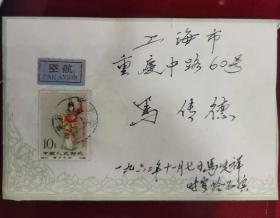 上海市
重慶中路60号
馬傳德
航空
PAR AVION
10分
中国人民邮政
一九六二年十一月七日馬